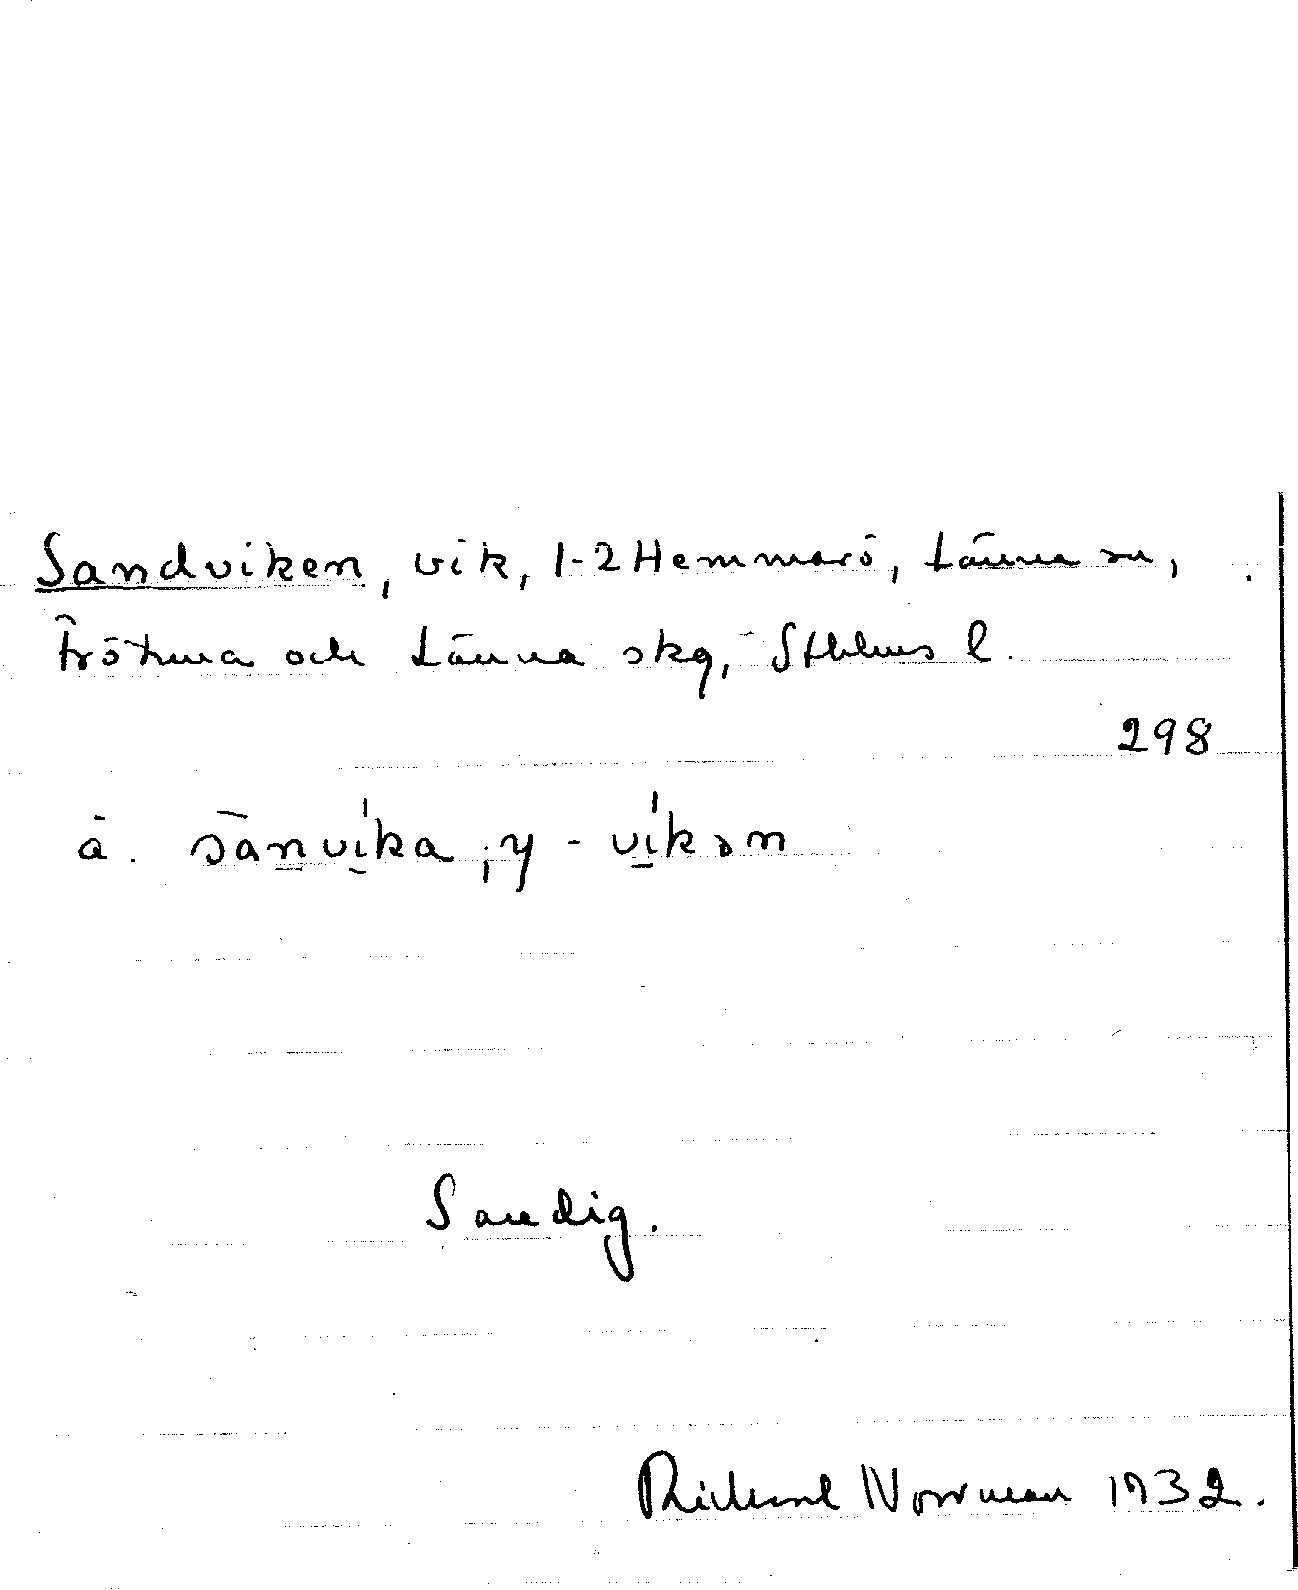 Sandviken, vik, 1-2 Hemmarö, Länna sn,
Frötuna och Länna skg, Sthlms l.
298
ä. sanvika, y -vikən
Sandig.
Rickard Norrman 1932.